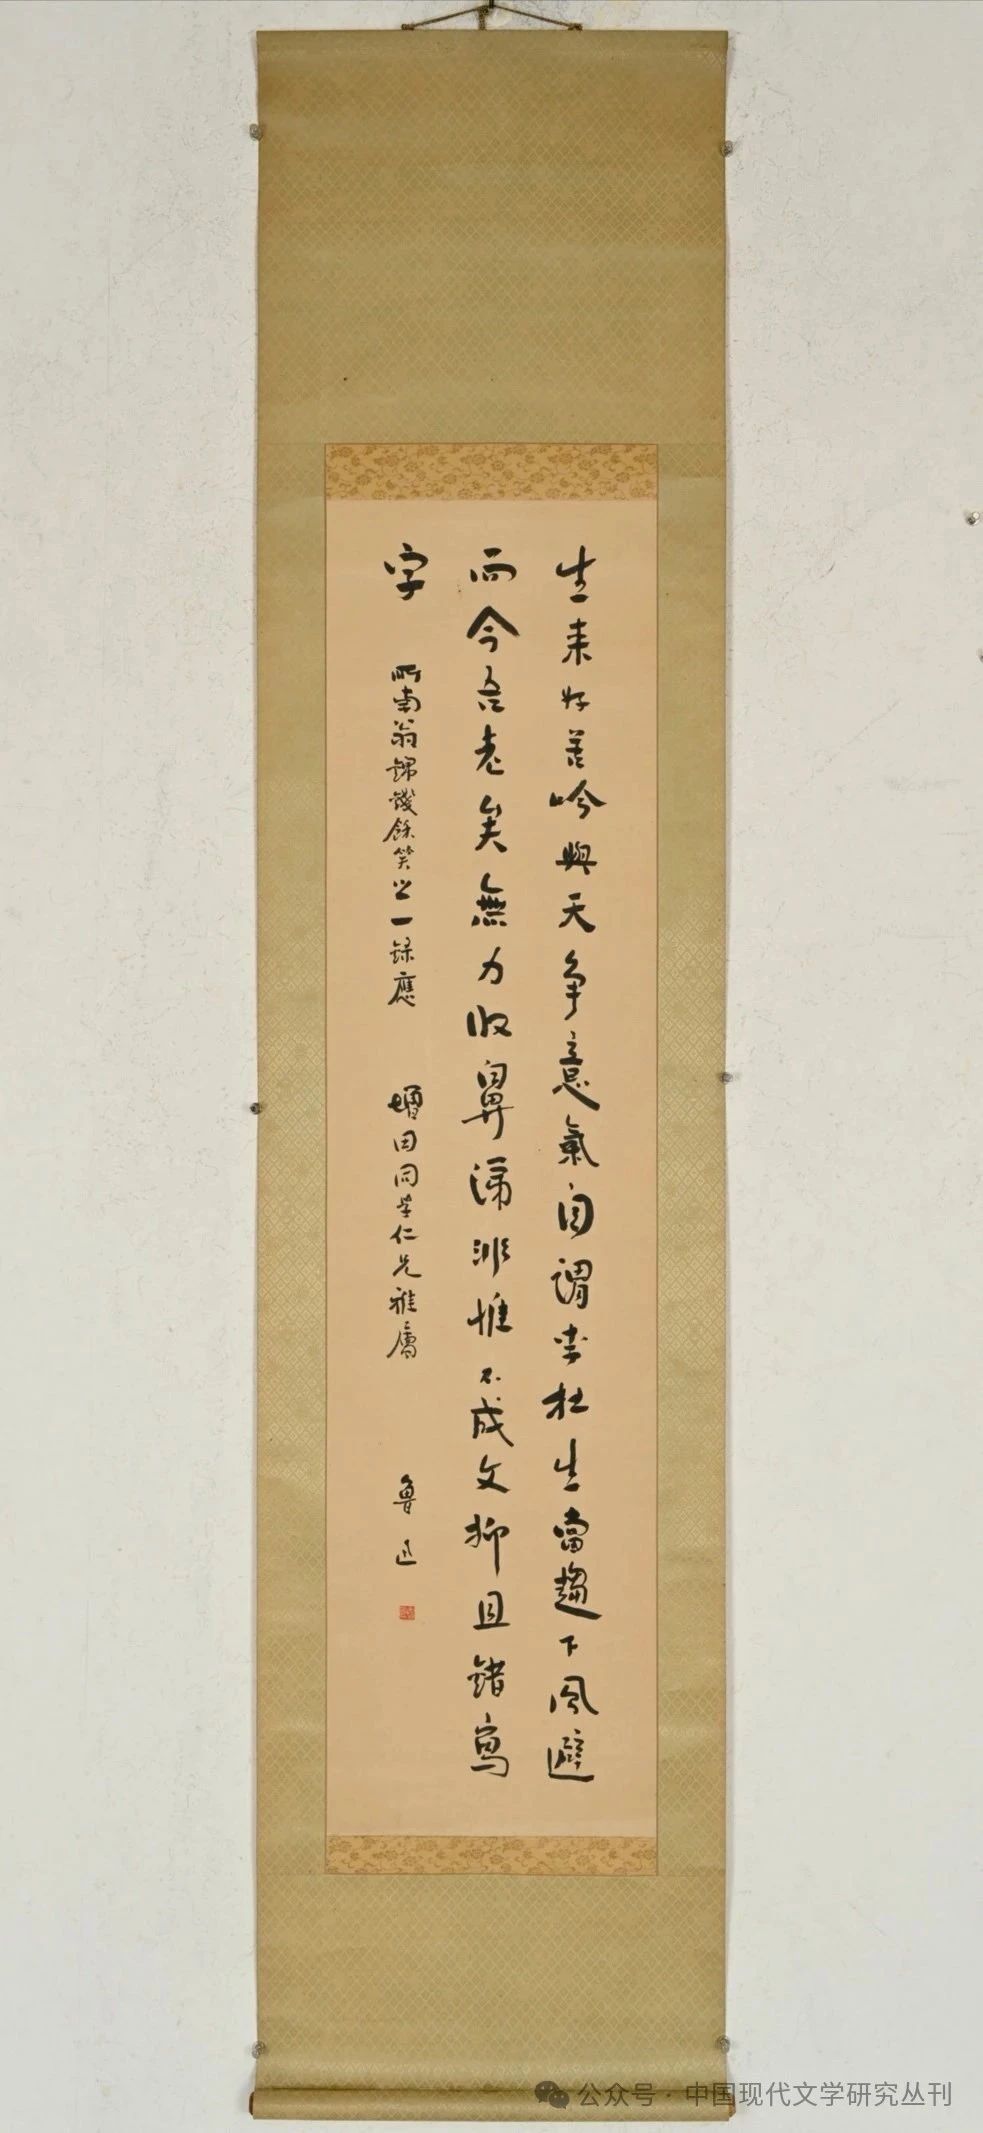 生来好苦吟與天争意氣自謂李杜生當趨下風避
而今吾老矣無力收鼻涕非惟不成文抑且錯寫
字
所南翁錦錢餘笑之一録應
增田同学仁兄雅屬
魯迅
公众号·中国现代文学研究丛刊